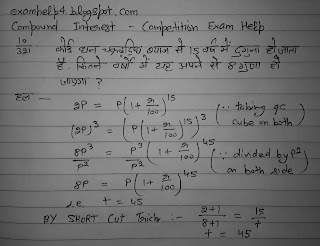 examhelp4.blogspot.com
Compound Interest - Competition Exam Help
10/331 कोई धन चक्रवृद्धि ब्याज से 15 वर्ष में दुगुना हो जाता
है. कितने वर्षों में यह अपने से 8 गुणा हो
जाएगा ?
हल —
2P = P(1 + r/100)^15
(2P)^3 = P(1 + r/100)^15)^3 (∵ taking qc cube on both)
8P^3/P^2 = P^3/P^2 (1 + r/100)^45 (∵ divided by P^2 on both side)
8P = P(1 + r/100)^45
i.e t = 45
BY SHORT CUT Tricks :- 2+1/8+1 = 15/t
t = 45